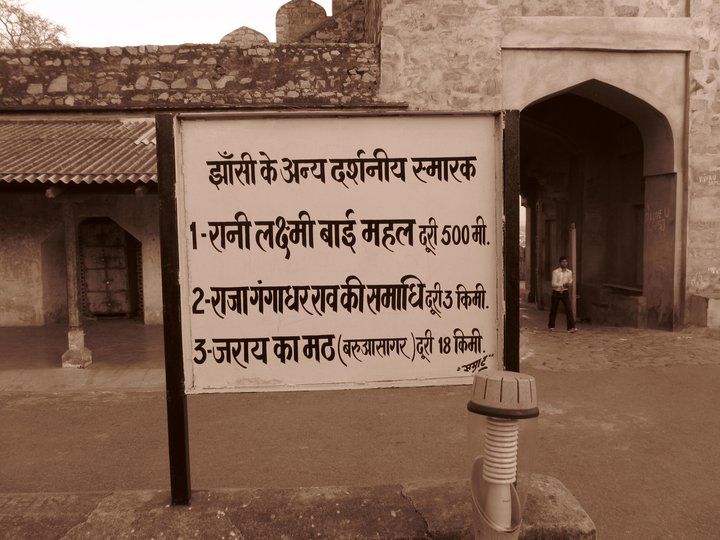 झाँसी के अन्य दर्शनीय स्मारक
1-रानी लक्ष्मी बाई महल दूरी 500 मी.
2-राजा गंगाधर राव की समाधि दूरी 3 किमी.
3-जराय का मठ (बरुआसागर) दूरी 18 किमी.
I LOVE U